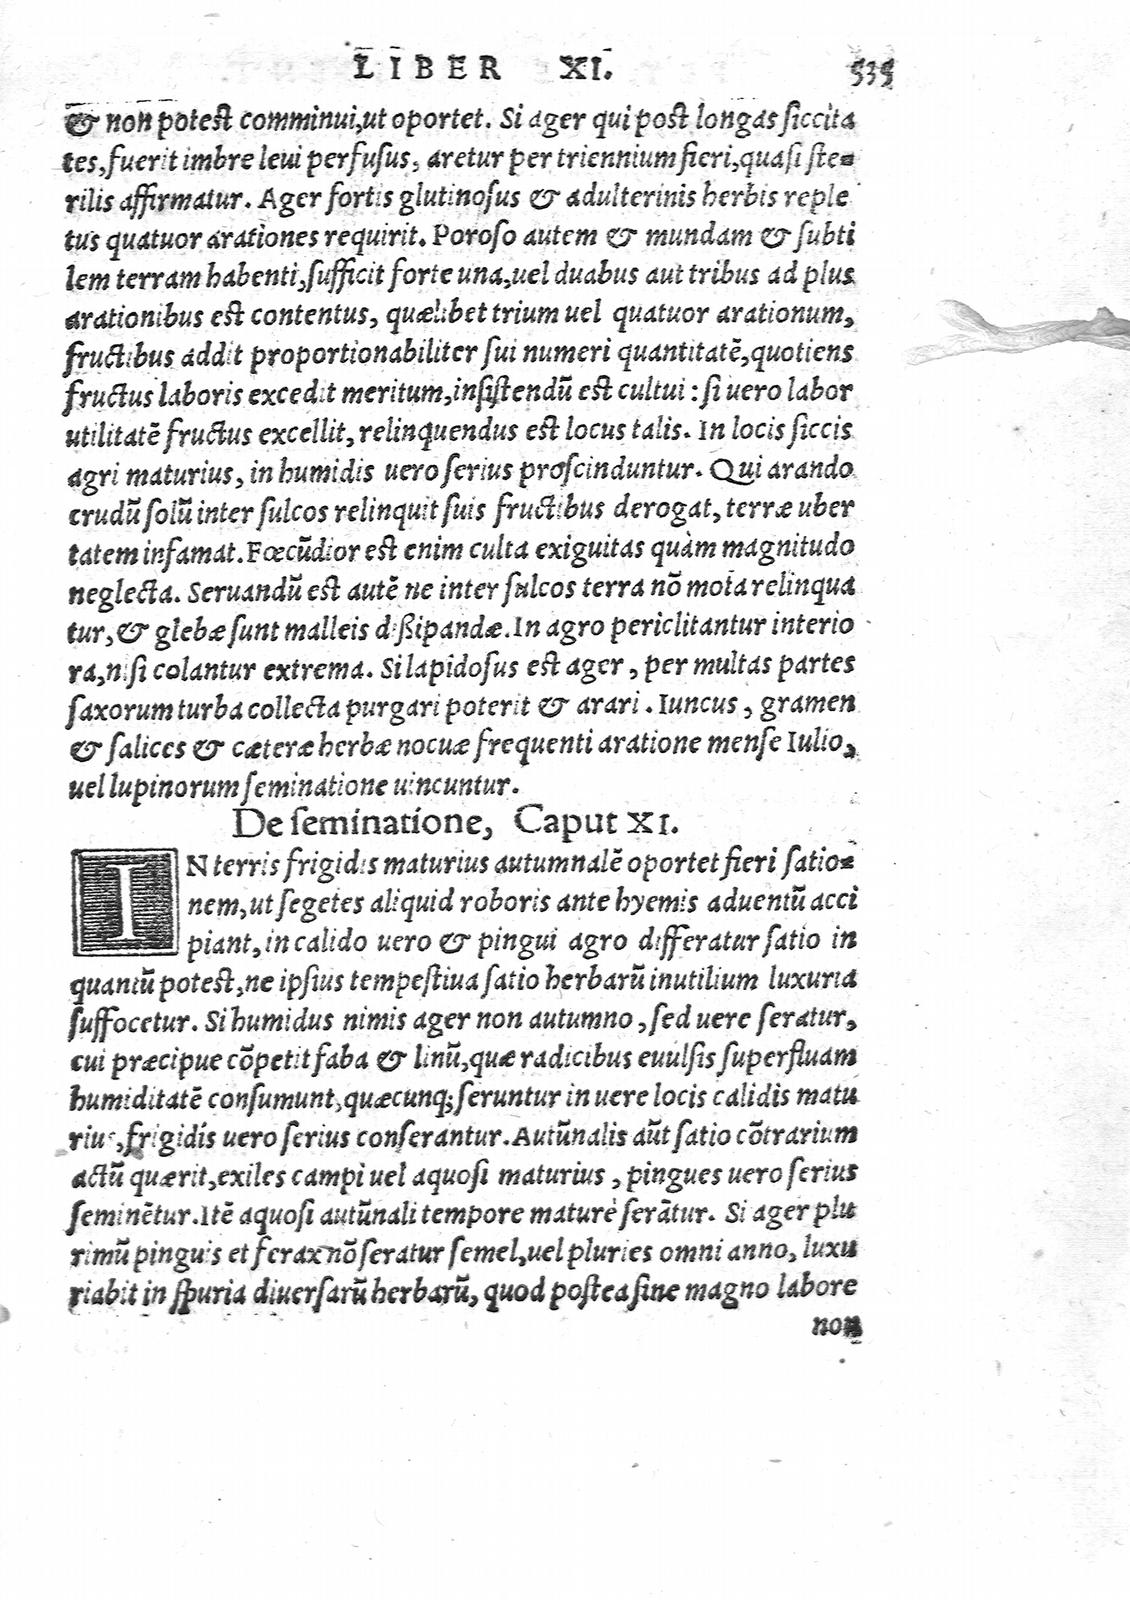 LIBER XI. 535
& non potest comminui, ut oportet. Si ager qui post longas siccita
tes, fuerit imbre leui perfusus, aretur per triennium fieri, quasi ste=
rilis affirmatur. Ager fortis glutinosus & adulterinis herbis reple
tus quatuor arationes requirit. Poroso autem & mundam & subti
lem terram habenti, sufficit forte una, uel duabus aut tribus ad plus
arationibus est contentus, quælibet trium uel quatuor arationum,
fructibus addit proportionabiliter sui numeri quantitatē, quotiens
fructus laboris excedit meritum, insistendū est cultui: si uero labor
utilitatē fructus excellit, relinquendus est locus talis. In locis siccis
agri maturius, in humidis uero serius proscinduntur. Qui arando
crudū solū inter sulcos relinquit suis fructibus derogat, terræ uber
tatem infamat. Fœcūdior est enim culta exiguitas quàm magnitudo
neglecta. Seruandū est autē ne inter sulcos terra nō mota relinqua
tur, & glebæ sunt malleis dißipandæ. In agro periclitantur interio
ra, nisi colantur extrema. Si lapidosus est ager, per multas partes
saxorum turba collecta purgari poterit & arari. Iuncus, gramen
& salices & cæteræ herbæ nocuæ frequenti aratione mense Iulio,
uel lupinorum seminatione uincuntur.
De seminatione, Caput XI.
IN terris frigidis maturius autumnalē oportet fieri satio=
nem, ut segetes aliquid roboris ante hyemis aduentū acci
piant, in calido uero & pingui agro differatur satio in
quantū potest, ne ipsius tempestiua satio herbarū inutilium luxuria
suffocetur. Si humidus nimis ager non autumno, sed uere seratur,
cui præcipue cōpetit faba & linū, quæ radicibus euulsis superfluam
humiditatē consumunt, quæcunq; seruntur in uere locis calidis matu
rius, frigidis uero serius conserantur. Autūnalis aūt satio cōtrarium
actū quærit, exiles campi uel aquosi maturius, pingues uero serius
seminētur. Itē aquosi autūnali tempore maturè serātur. Si ager plu
rimū pinguis et ferax nō seratur semel, uel pluries omni anno, luxu
riabit in spuria diuersarū herbarū, quod postea sine magno labore
non